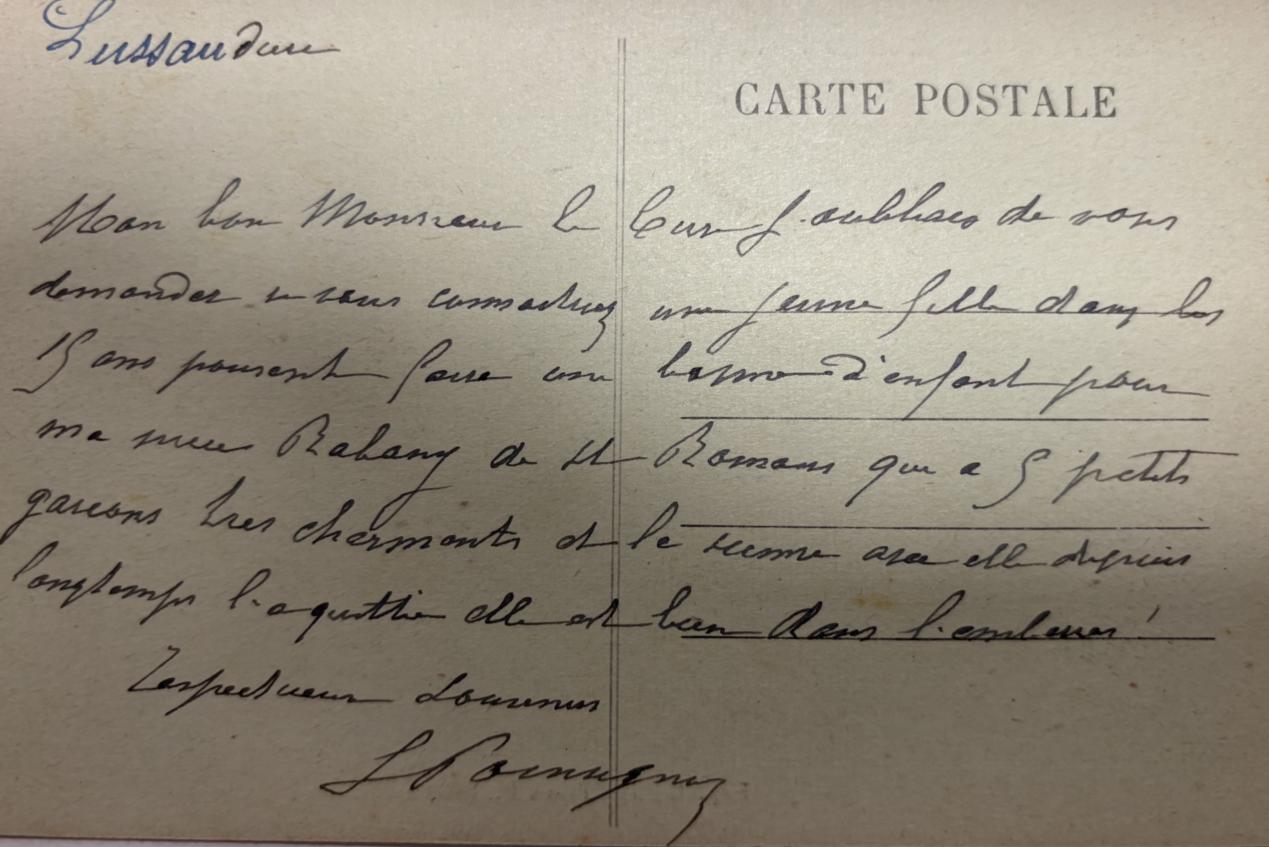 Lussaudiere
CARTE POSTALE
Mon bon Monsieur le Cure j'oubliais de vous
demander si vous connaitriez une jeune fille dans les
15 ans pouvant faire une bonne d'enfant pour
ma niece Rabany de St Romans qui a 5 petits
garcons tres charmants et la sienne avec elle depuis
longtemps l'a quittée elle est bien dans l'embarras!
Respectueux souvenirs